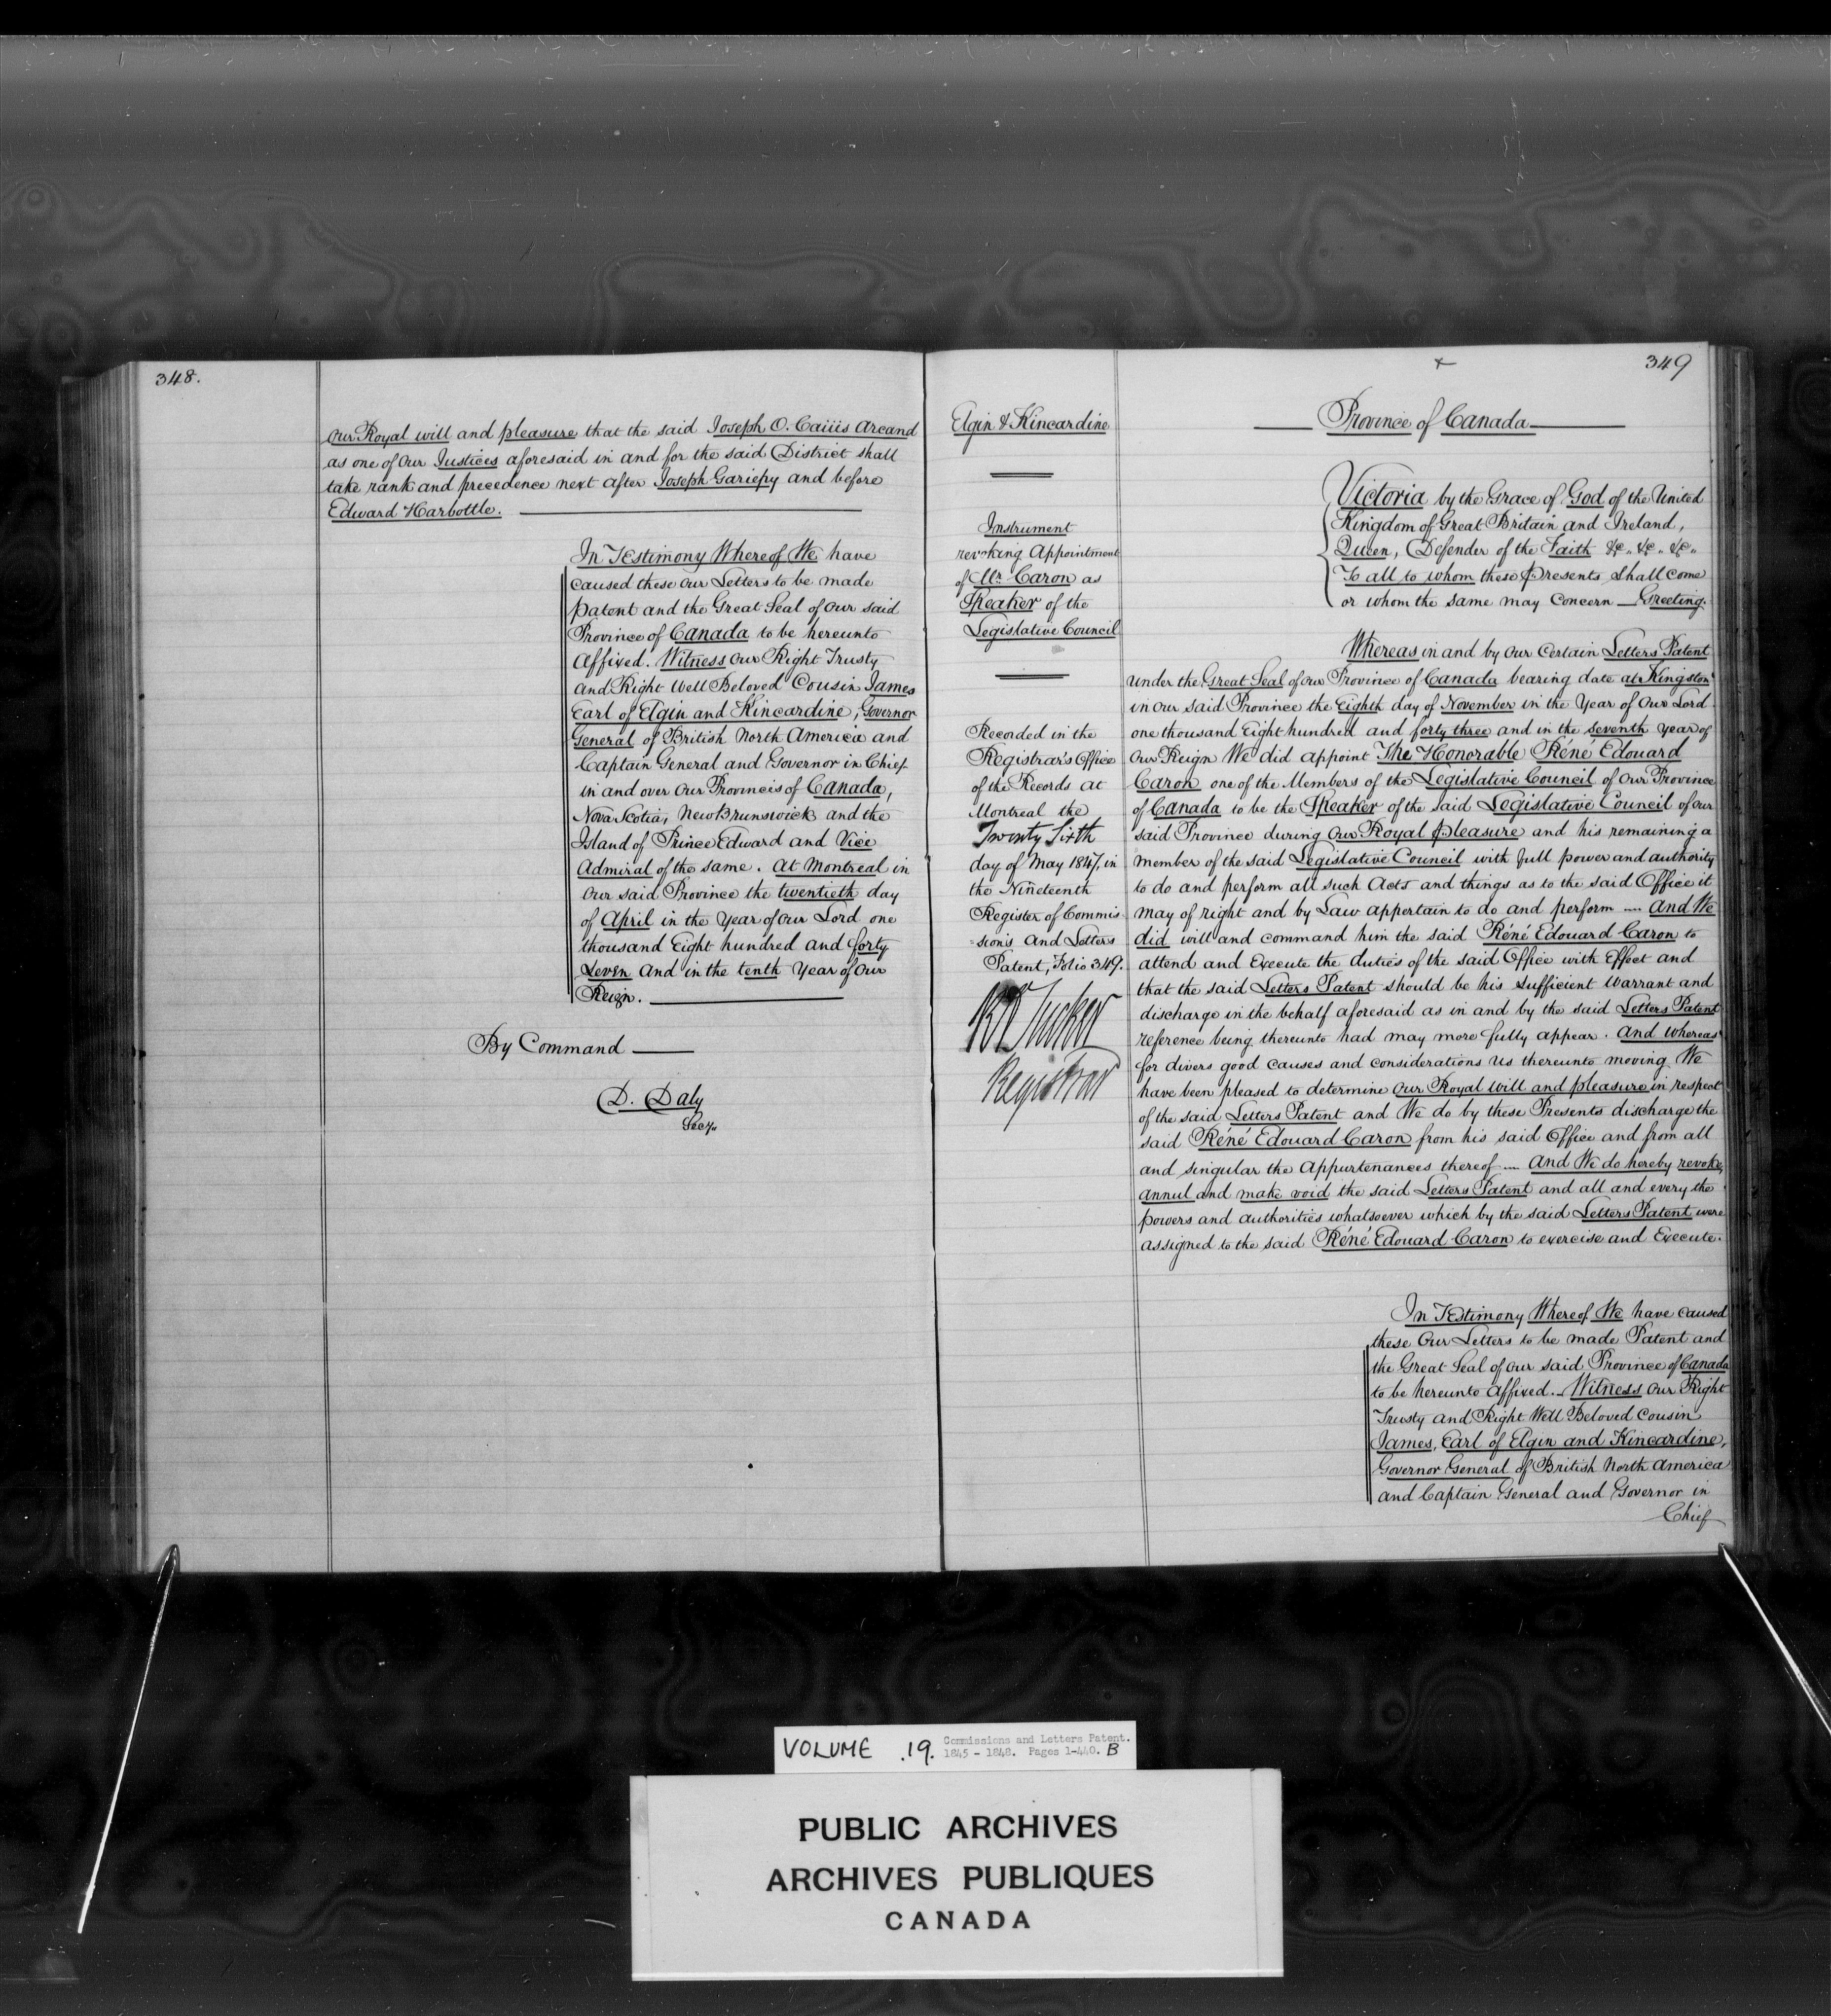 348.
Our Royal will and pleasure that the said Joseph O. Caiiis Arcand
as one of Our Justices aforesaid in and for the said District shall
take rank and precedence next after Joseph Gariepy and before
Edward Harbottle.
In Testimony Whereof We have
caused these Our Letters to be made
patent and the Great Seal of Our said
Province of Canada to be hereunto
affixed. Witness Our Right Trusty
and Right Well Beloved Cousin James
Earl of Elgin and Kincardine, Governor
General of British North America and
Captain General and Governor in Chief
in and over Our Provinces of Canada,
Nova Scotia, New Brunswick and the
Island of Prince Edward and Vice
Admiral of the same. At Montreal in
Our said Province the twentieth day
of April in the Year of Our Lord one
thousand Eight hundred and forty
Seven and in the tenth Year of Our
Reign.
By Command
D. Daly
Secy.
349
Elgin & Kincardine
Instrument
revoking Appointment
of Mr. Caron as
Speaker of the
Legislative Council
Recorded in the
Registrar's Office
of the Records at
Montreal the
Twenty Sixth
day of May 1847, in
the Nineteenth
Register of Commis
=sions and Letters
Patent, Folio 349.
R Tucker
Registrar
Province of Canada
Victoria by the Grace of God of the United
Kingdom of Great Britain and Ireland,
Queen, Defender of the Faith &c. &c. &c.
To all to whom these Presents shall come
or whom the same may Concern — Greeting.
Whereas in and by Our Certain Letters Patent
under the Great Seal of Our Province of Canada bearing date at Kingston
in Our said Province the Eighth day of November in the Year of Our Lord
one thousand Eight hundred and forty three and in the seventh Year of
Our Reign We did appoint The Honorable Réné Edouard
Caron one of the Members of the Legislative Council of Our Province
of Canada to be the Speaker of the said Legislative Council of our
said Province during Our Royal Pleasure and his remaining a
member of the said Legislative Council with full power and authority
to do and perform all such Acts and things as to the said Office it
may of right and by Law appertain to do and perform — And We
did will and command him the said Réné Edouard Caron to
attend and Execute the duties of the said Office with Effect and
that the said Letters Patent should be his sufficient warrant and
discharge in the behalf aforesaid as in and by the said Letters Patent
reference being thereunto had may more fully appear. And whereas
for divers good causes and considerations Us thereunto moving We
have been pleased to determine Our Royal will and pleasure in respect
of the said Letters Patent and We do by these Presents discharge the
said Réné Edouard Caron from his said Office and from all
and singular the Appurtenances thereof — And We do hereby revoke,
annul and make void the said Letters Patent and all and every the
powers and authorities whatsoever which by the said Letters Patent were
assigned to the said Réné Edouard Caron to exercise and Execute.
In Testimony Whereof We have caused
these Our Letters to be made Patent and
the Great Seal of Our said Province of Canada
to be hereunto affixed. Witness Our Right
Trusty and Right Well Beloved Cousin
James, Earl of Elgin and Kincardine,
Governor General of British North America
and Captain General and Governor in
Chief
VOLUME .19. Commissions and Letters Patent.
1845 - 1848. Pages 1-440. B
PUBLIC ARCHIVES
ARCHIVES PUBLIQUES
CANADA